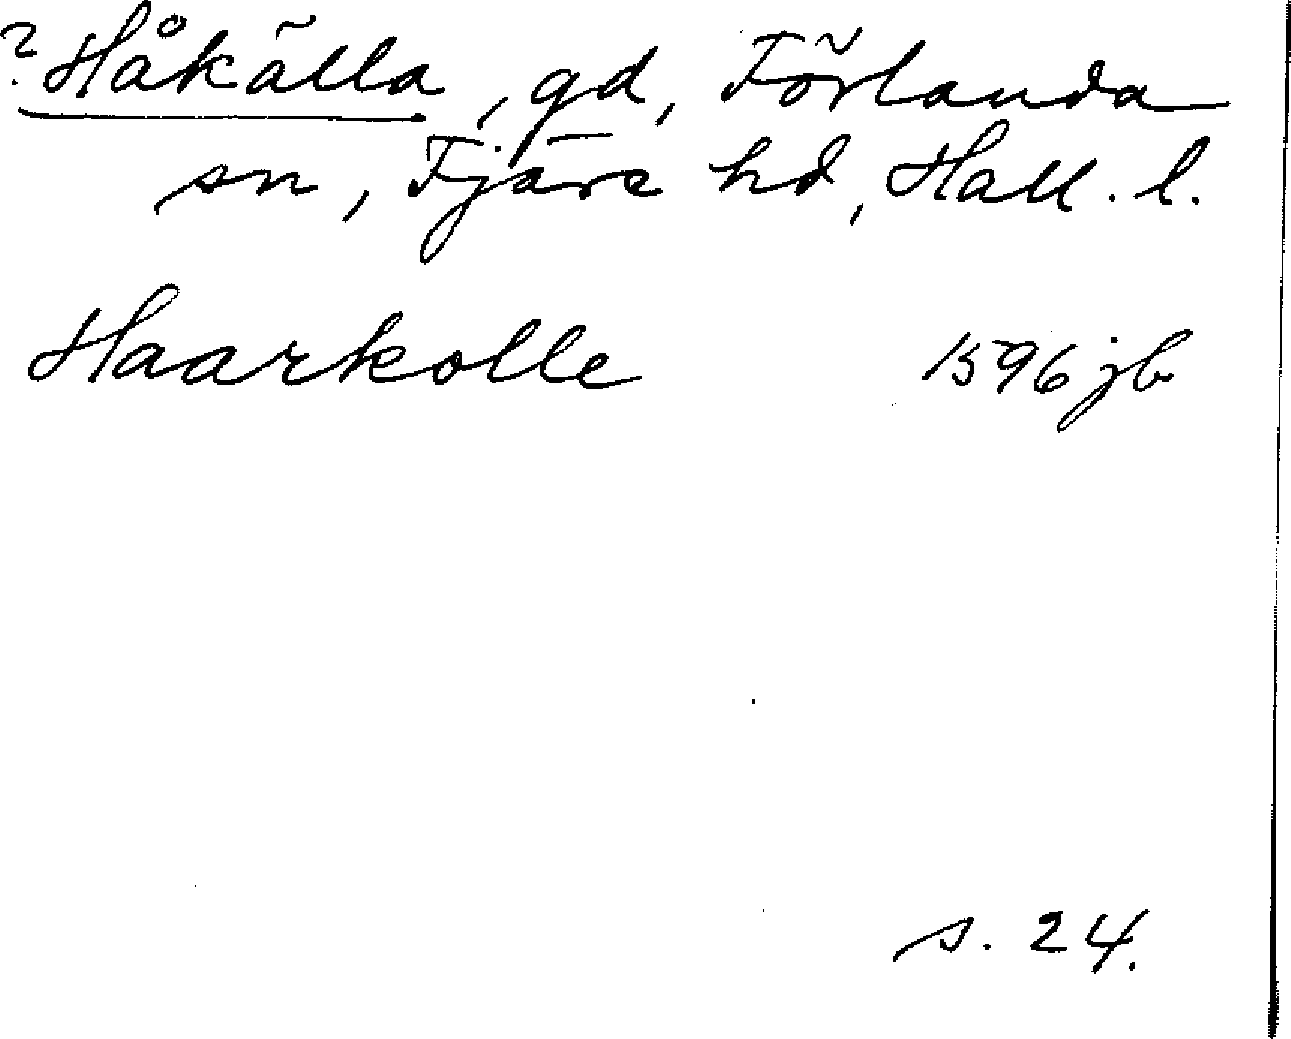 ? Håkälla, gd, Förlanda
sn, Fjäre hd, Hall. l.
Haarkolle 1596 jb
s. 24.